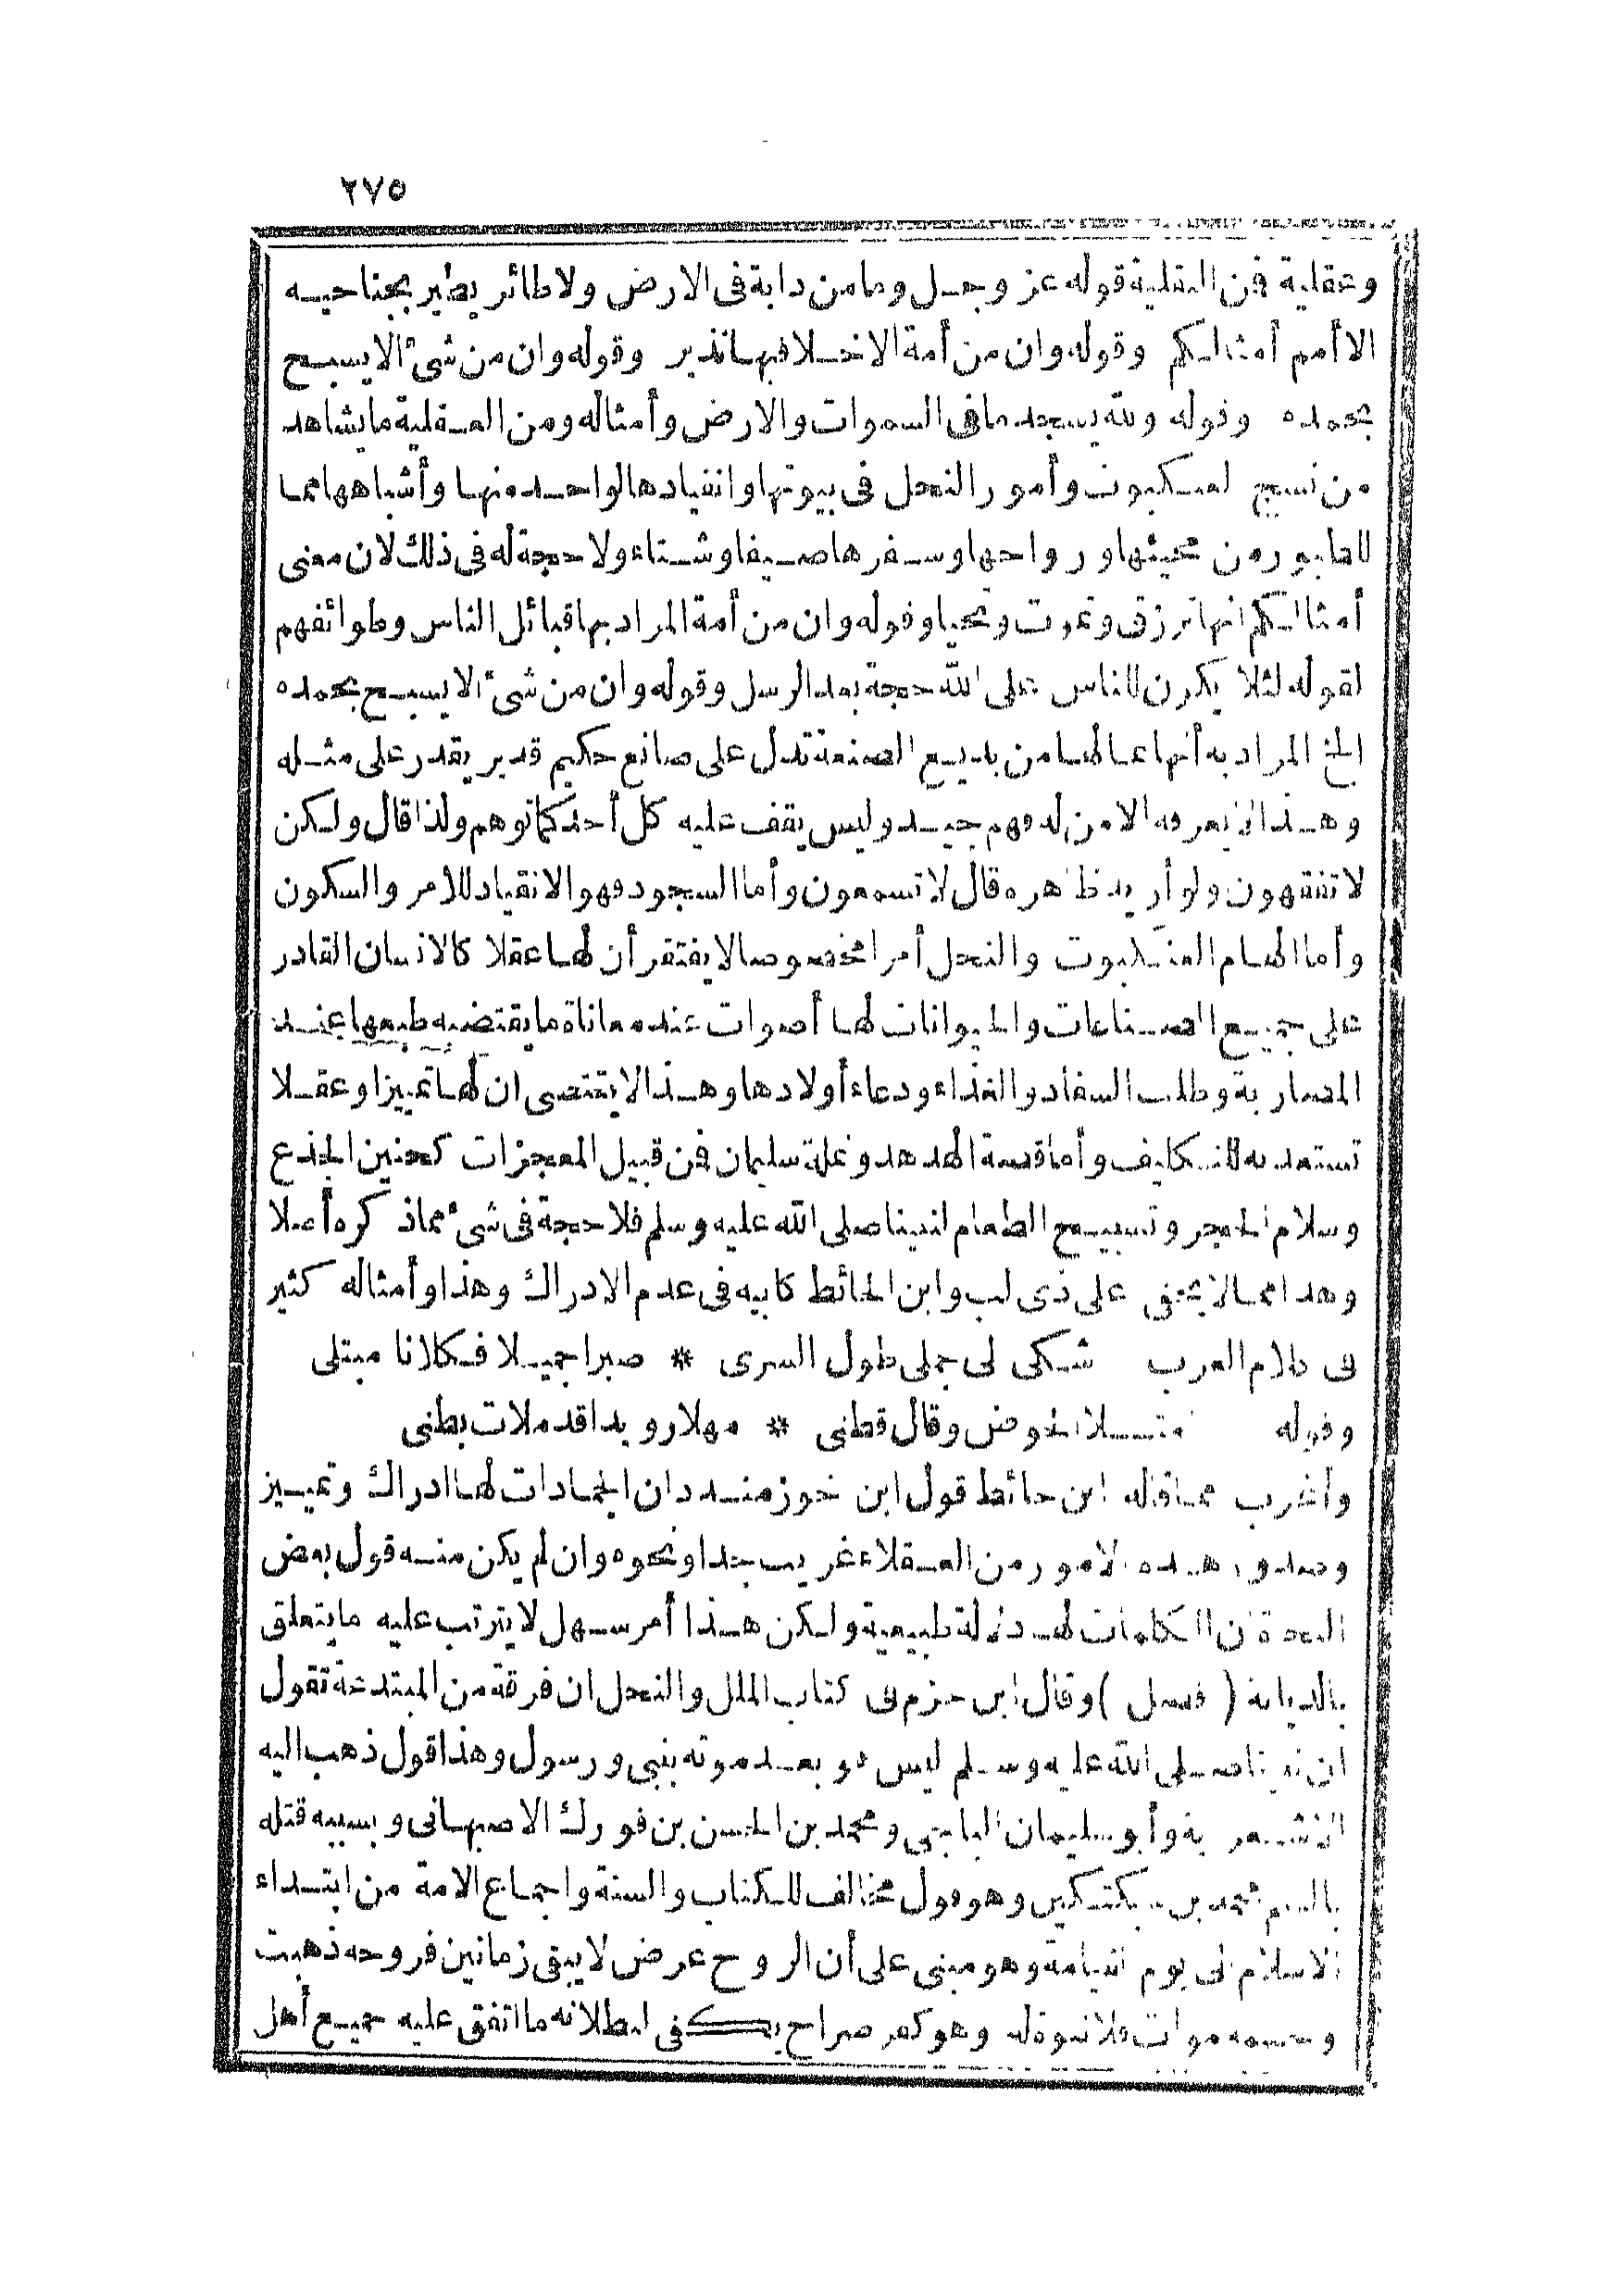 ٢٧٥
وعقلية فمن النقلية قوله عز وجل وما من دابة فى الارض ولا طائر يطير بجناحيه
الا أمم أمثالكم وقوله وان من أمة الا خلا فيها نذير وقوله وان من شئ الا يسبح
بحمده وقوله ولله يسجد ما فى السموات والارض وأمثاله ومن العقلية ما يشاهد
من نسج العنكبوت وأمور النحل فى بيوتها وانقيادها لواحد منها وأشباهها مما
للطيور من مجيئها ورواحها وسفرها صيفا وشتاء ولا حجة له فى ذلك لان معنى
أمثالكم انها ترزق وتموت وتحيا وقوله وان من أمة المراد بها قبائل الناس وطوائفهم
لقوله لئلا يكون للناس على الله حجة بعد الرسل وقوله وان من شئ الا يسبح بحمده
الخ المراد به أنها عالها من بديع الصنعة تدل على صانع حكيم قدير يقدر على مثله
وهذا انما يعرفه الا من له فهم جيد وليس يقف عليه كل أحد كما توهم ولذا قال ولكن
لا تفقهون ولو أريد ظاهره قال لا تسمعون وأما السجود فهو الانقياد للامر والسكون
وأما الهام العنكبوت والنحل أمرا مخصوصا لا يفتقر أن لها عقلا كالانسان القادر
على جميع الصناعات والحيوانات لها أصوات عند معاناة ما يقتضيه طبعها عند
المضاربة وطلب السفاد والغذاء ودعاء أولادها وهذا لا يقتضى ان لها تمييزا وعقلا
تستعد به للتكليف وأما قصة الهدهد ونملة سليمان فمن قبيل المعجزات كحنين الجذع
وسلام الحجر وتسبيح الطعام لنبينا صلى الله عليه وسلم فلا حجة فى شئ مما ذكره أصلا
وهذا مما لا يخفى على ذى لب وابن الحائط كأبيه فى عدم الادراك وهذا وأمثاله كثير
فى كلام العرب شكى لى جملى طول السرى * صبرا جميلا فكلانا مبتلى
وقوله امتلا الحوض وقال قطنى * مهلا رويدا قد ملات بطنى
وأغرب مما قاله ابن حائط قول ابن خوز منداد ان الجمادات لها ادراك وتمييز
وصدور هذه الامور من العقلاء غريب جدا ونحوه وان لم يكن منه قول بعض
النحاة ان الكلمات لها دلالة طبيعية ولكن هذا أمر سهل لا يترتب عليه ما يتعلق
بالديانة ( فصل ) وقال ابن حزم فى كتاب الملل والنحل ان فرقة من المبتدعة تقول
ان نبينا صلى الله عليه وسلم ليس هو بعد موته بنبى ورسول وهذا قول ذهب اليه
الاشعرية وأبو سليمان الباجى ومحمد بن الحسن بن فورك الاصبهانى وبسببه قتله
بالسم محمد بن سبكتكين وهو قول مخالف للكتاب والسنة واجماع الامة من ابتداء
الاسلام الى يوم القيامة وهو مبنى على أن الروح عرض لا يبقى زمانين فروحه ذهبت
وجسمه موات فلا نبوة له وهو كفر صراح يكفى ابطلانه ما اتفق عليه جميع أهل